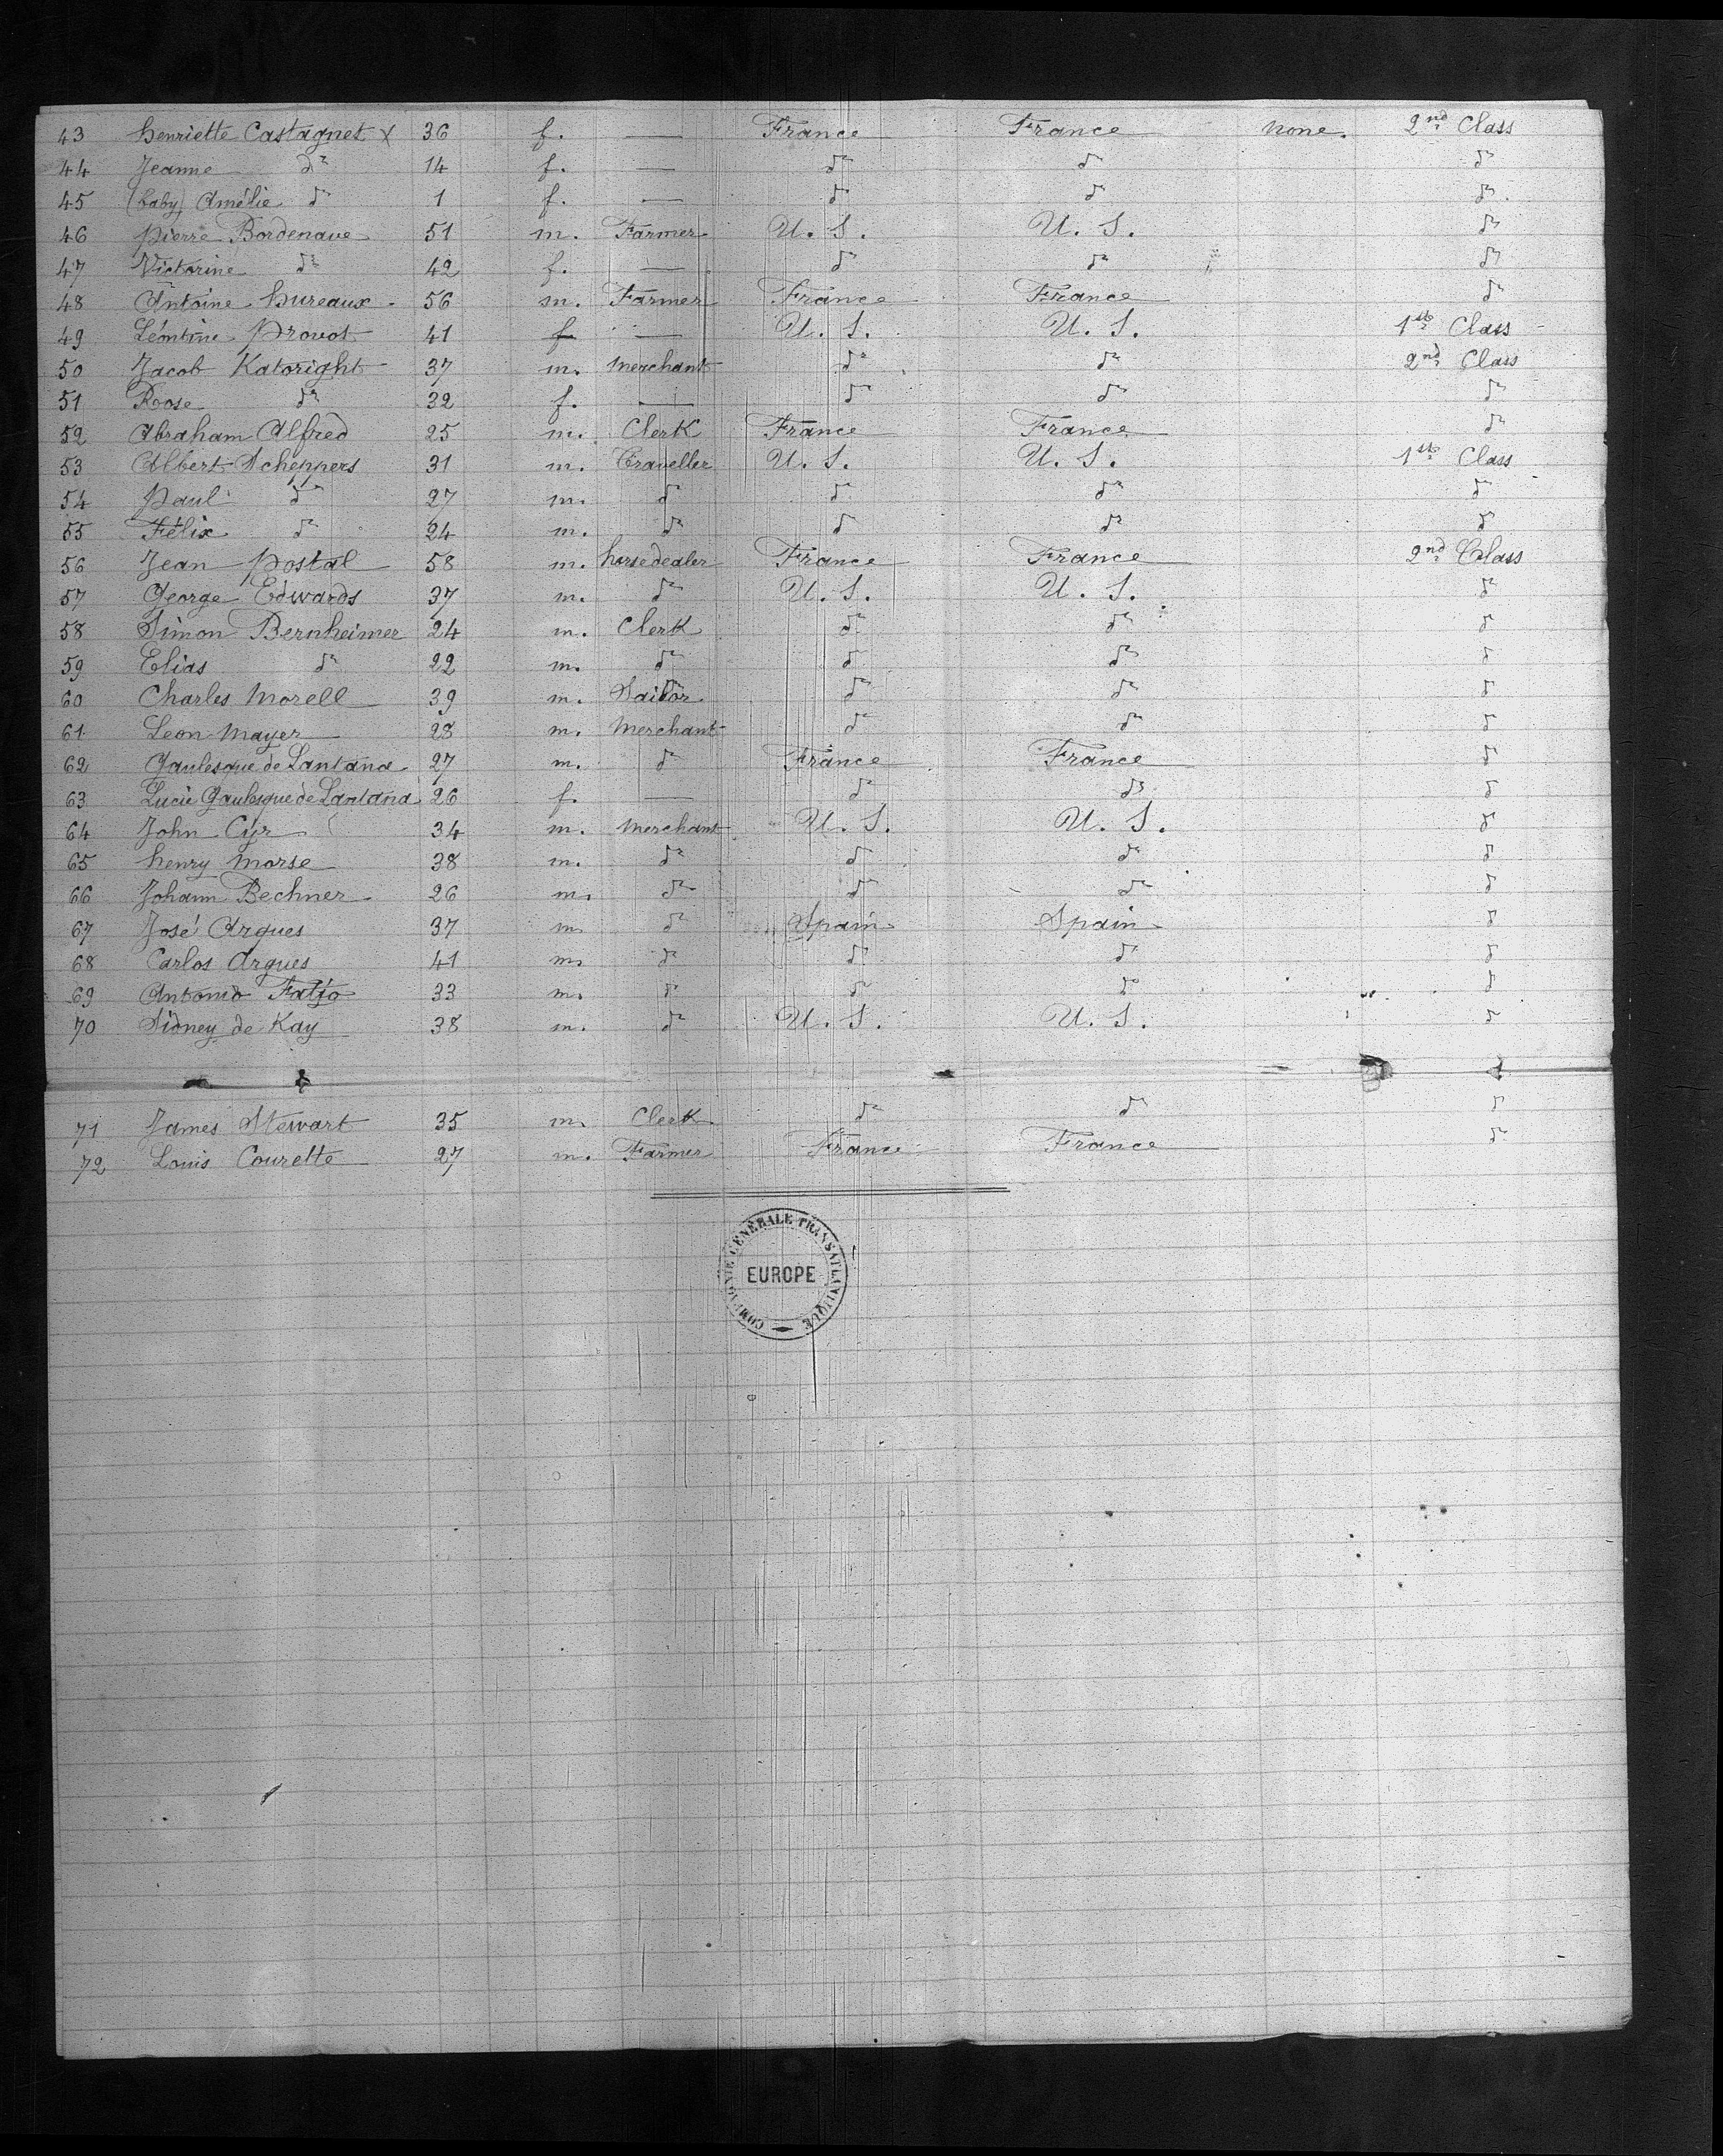 43 Henriette Castagnet x 36 f. — France France none. 2nd Class
44 Jeanne do 14 f. — do do do
45 (baby) Amélie do 1 f. — do do do.
46 Pierre Bordenave 51 m. Farmer U. S. U. S. do
47 Victorine do 42 f. — do do do
48 Antoine Hureaux 56 m. Farmer France France do
49 Léontine Provot 41 f — U. S. U. S. 1st Class
50 Jacob Katoright 37 m. Merchant do do 2nd Class
51 Rose do 32 f. — do do do
52 Abraham Alfred 25 m. Clerk France France do
53 Albert Scheppers 31 m. Traveller U. S. U. S. 1st Class
54 Paul do 27 m. do do do do
55 Félix do 24 m. do do do do
56 Jean Postal 58 m. horsedealer France France 2nd Class
57 George Edwards 37 m. do U. S. U. S. do
58 Simon Bernheimer 24 m. Clerk do do do
59 Elias do 22 m. do do do do
60 Charles Morell 39 m. Sailor do do do
61 Leon Mayer 28 m. Merchant do do do
62 Gaulesque de Lantana 27 m. do France France do
63 Lucie Gaulesque de Lantana 26 f. — do do do
64 John Cyr 34 m. Merchant U. S. U. S. do
65 Henry Morse 38 m. do do do do
66 Johann Bechner 26 m. do do do do
67 José Argues 37 m do Spain Spain do
68 Carlos Argues 41 m. do do do do
69 Antonio Fatjo 33 m. do do do do
70 Sidney de Kay 38 m. do U. S. U. S. do
71 James Stewart 35 m. Clerk do do do
72 Louis Courette 27 m. Farmer France France do
COMPAGNIE GÉNÉRALE TRANSATLANTIQUE
EUROPE